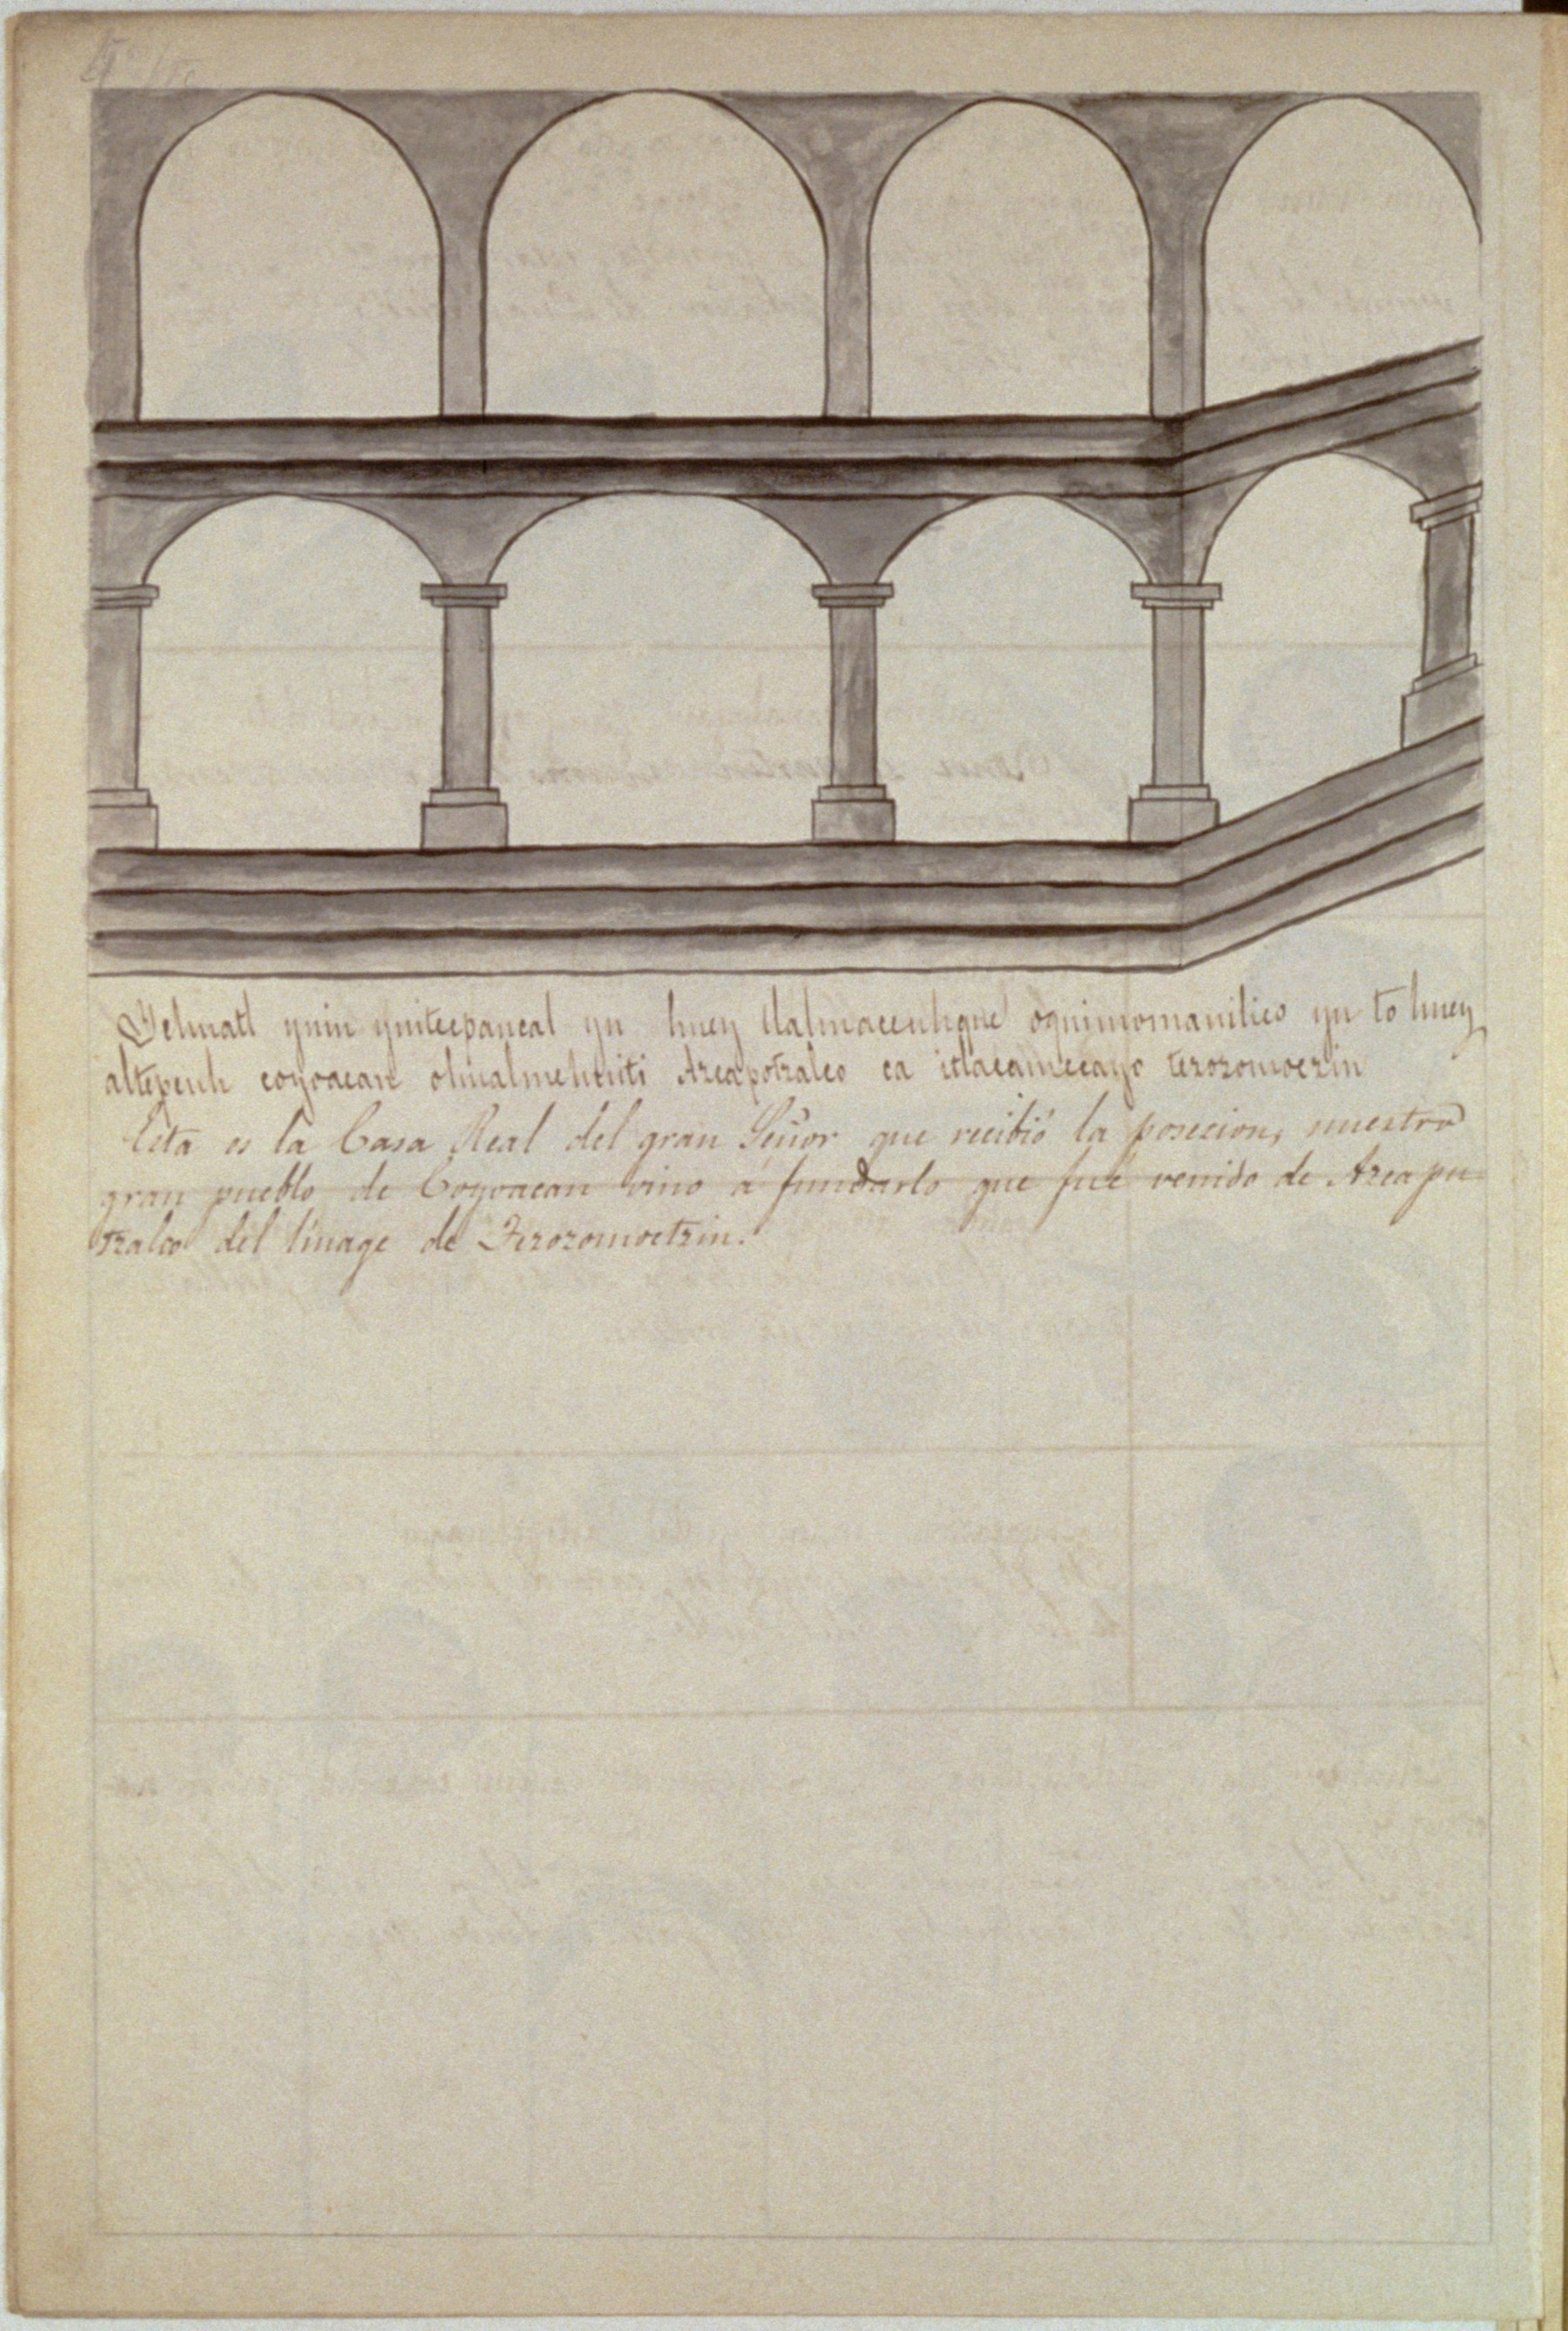 Yehuatl ynin ynitecpancal yn huey tlalmaceuhque oquimomanilico yn to huey
altepeuh coyoacan ohualmehuiti Azcapotzalco ca itlacamecayo tezozomoczin
Esta es la Casa Real del gran Señor que recibió la posecion, nuestro
gran pueblo de Coyoacan vino á fundarlo que fué venido de Azcapu-
tzalco del linage de Tezozomoctzin.